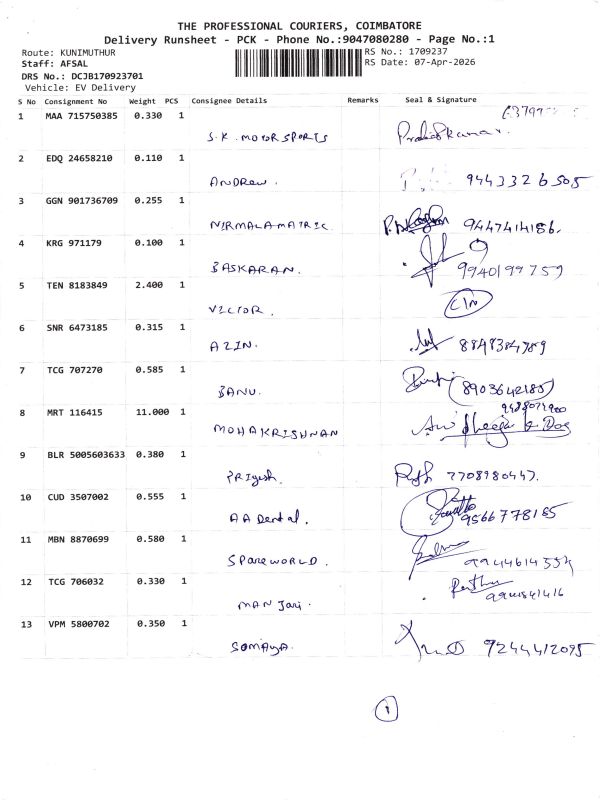 THE PROFESSIONAL COURIERS, COIMBATORE
Delivery Runsheet - PCK - Phone No.:9047080280 - Page No.:1
Route: KUNIMUTHUR RS No.: 1709237
Staff: AFSAL RS Date: 07-Apr-2026
DRS No.: DCJB170923701
Vehicle: EV Delivery
S No Consignment No Weight PCS Consignee Details Remarks Seal & Signature
1 MAA 715750385 0.330 1
S.K. MOTOR SPORTS
2 EDQ 24658210 0.110 1
ANDREW. 9443326505
3 GGN 901736709 0.255 1
NIRMALA MATRIC. 9447414186.
4 KRG 971179 0.100 1
BASKARAN. 9940199759
5 TEN 8183849 2.400 1
VICTOR.
6 SNR 6473185 0.315 1
AZIN. 8848384789
7 TCG 707270 0.585 1
BANU. 8903642185
8 MRT 116415 11.000 1
MOHAKRISHNAN
9 BLR 5005603633 0.380 1
PRIyesh. 7708980447.
10 CUD 3507002 0.555 1
AA Dental. 9566778185
11 MBN 8870699 0.580 1
SPAREWORLD. 9944614554
12 TCG 706032 0.330 1
MANJARI.
13 VPM 5800702 0.350 1
SOMAYA. 9244412095
1